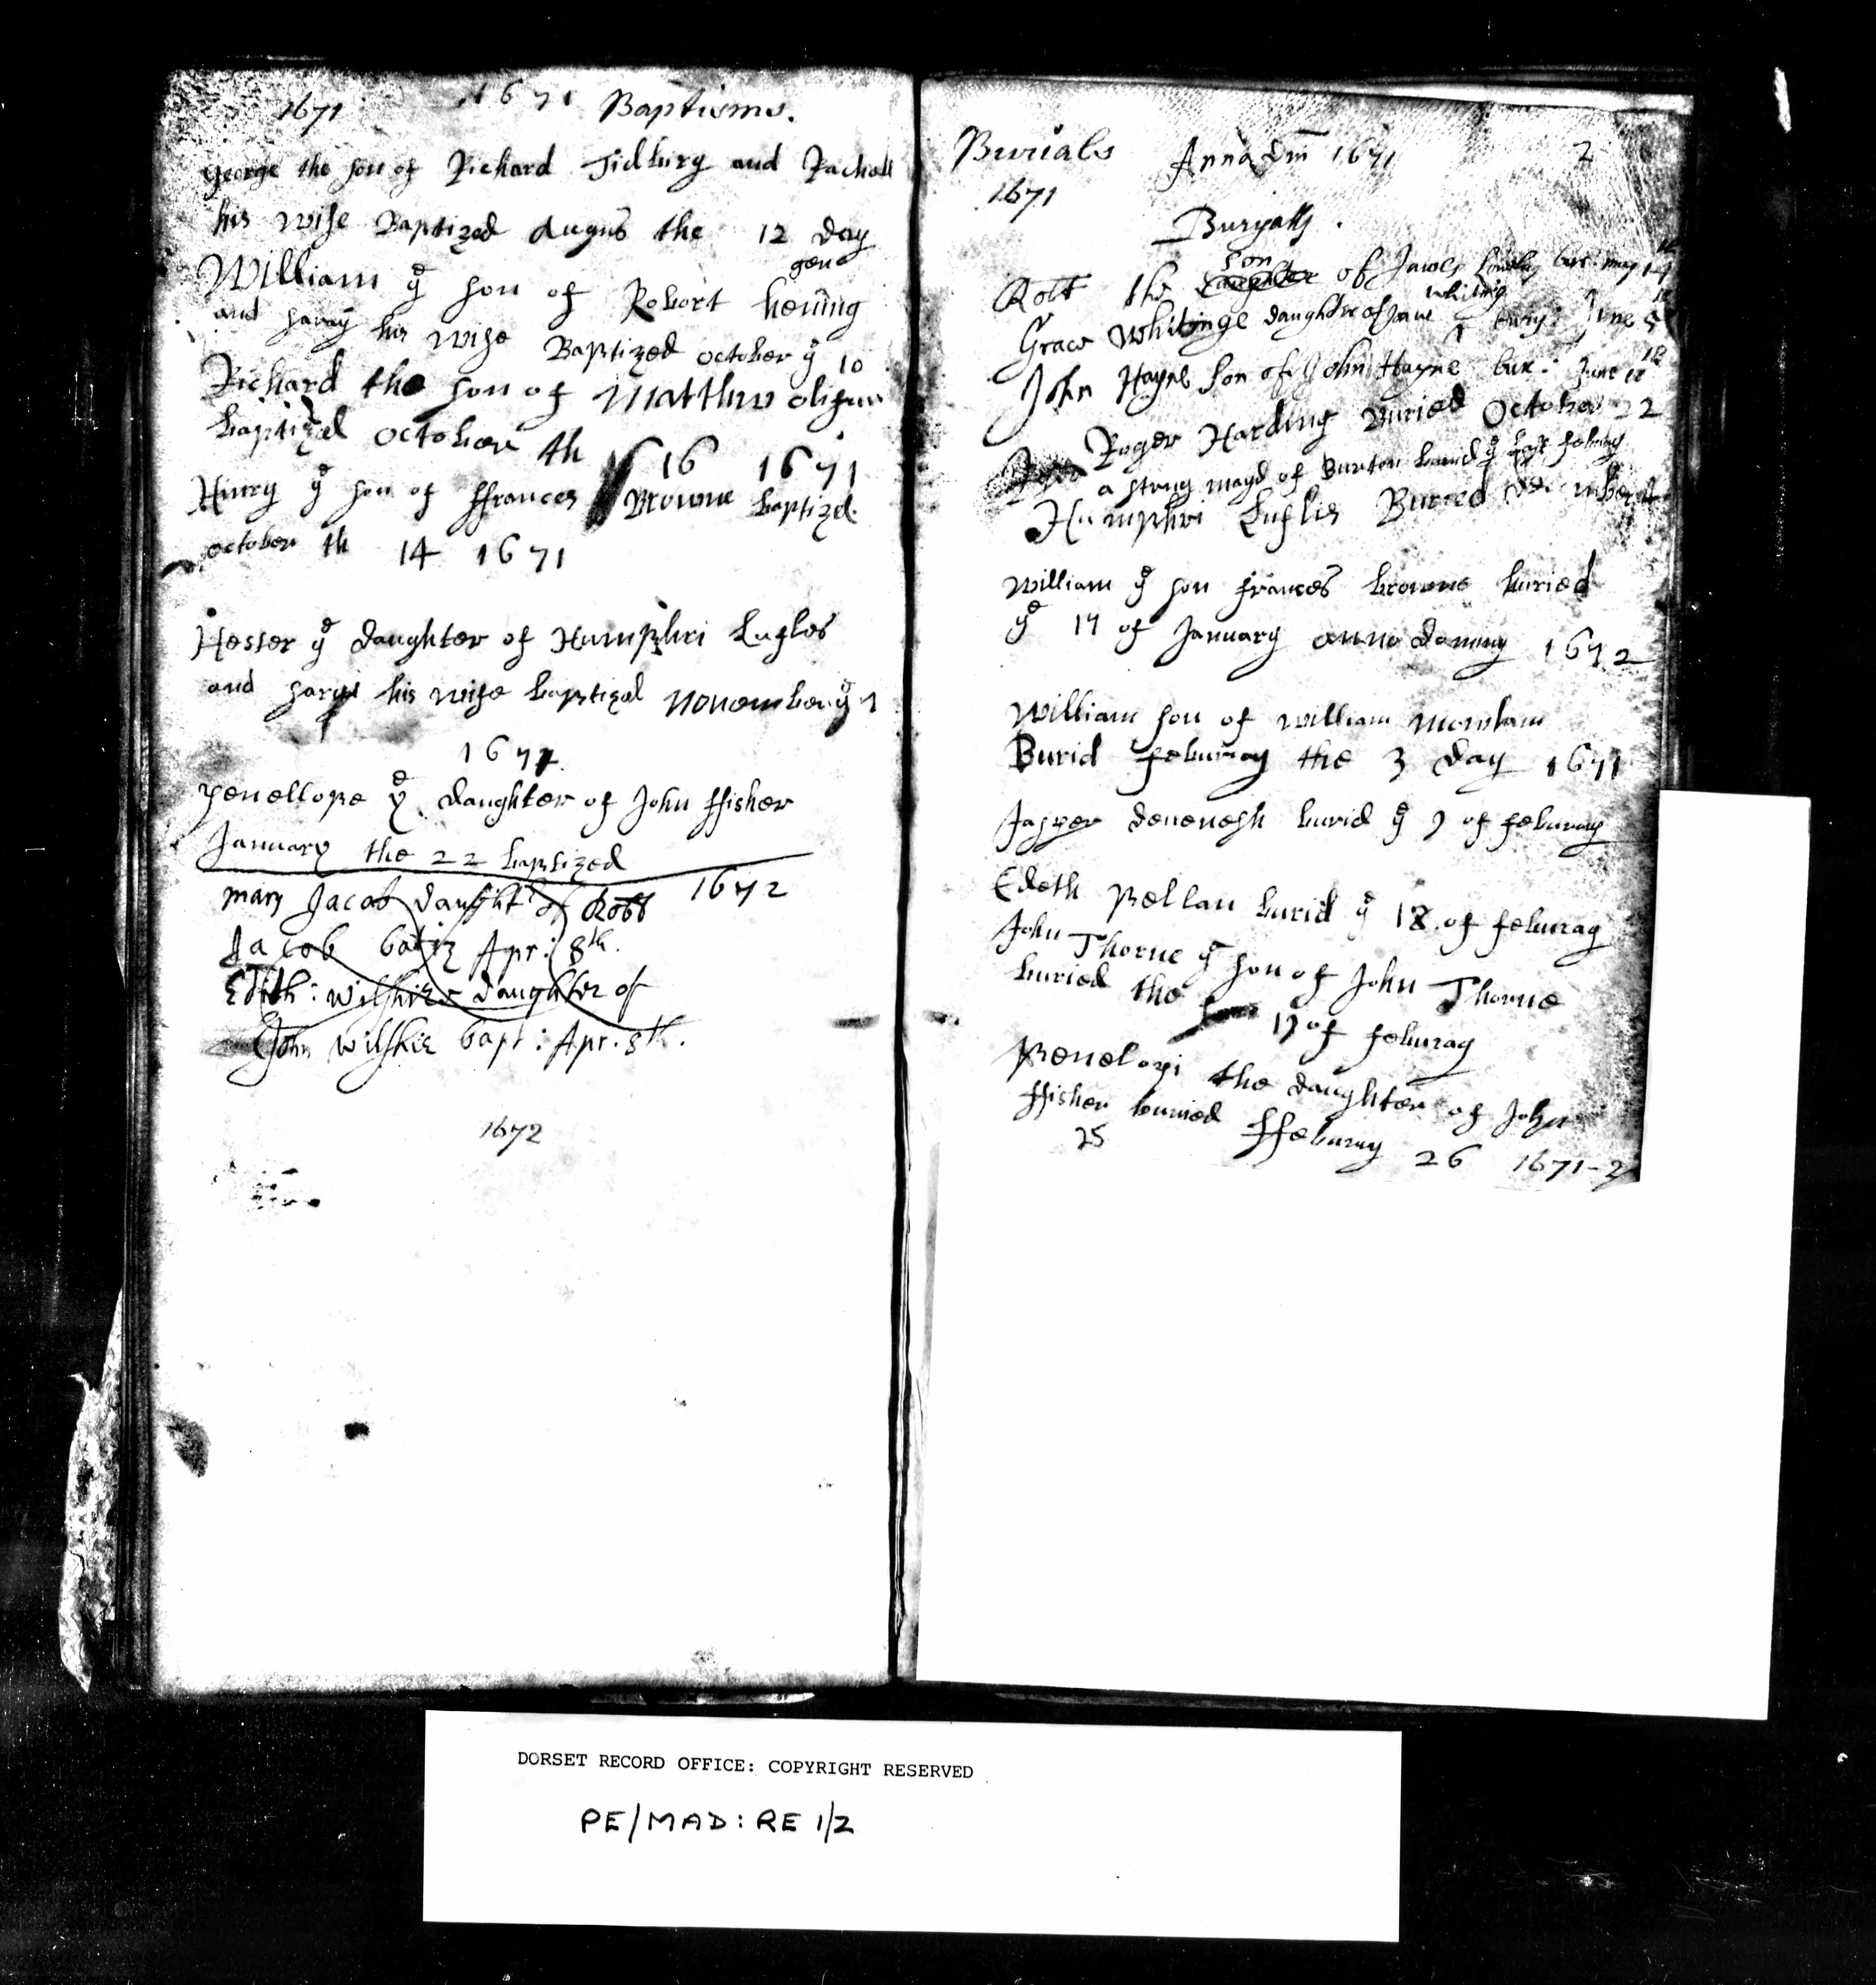 1671 1671 Baptisms.
George the son of Richard Tidbury and Rachell
his wife Baptized Augus the 12 day
William ye son of Robort hening gene
and his wife Baptized october ye 10
Richard the son of Matthew
baptized october th 16 1671
Hinry ye son of ffrances Browne baptized
october th 14 1671
Hesser ye daughter of Humphri
and his wife baptized november ye
1671
penellope ye daughter of John ffisher
January the 22 baptized
mary Jacob daught of Robt 1672
Jacob Apr: 8th.
Edith: daughter of
John bapt: Apr: 8th.
1672
Burials Anna Dm 1671 2
1671
Buryalls.
Robt the daughter son of James bur: may 14
Grace Whitinge daughter of Jane whiting bury: June 5
John Hayne son of John Hayne bur: June 12
Roger Harding Buried October 22
a mayd of Burton burid ye febury
Humphri Buried
William ye son frances browne buried
ye 17 of January anno domny 1672
William son of William mowlam
Burid feburay the 3 day 1671
Jasper burid ye 9 of feburay
Edeth Pellan burid ye 18 of feburay
John Thorne ye son of John Thorne
buried the 19 of feburay
Penelopi the daughter of John
ffisher buried ffeburay 26 1671-2
25
DORSET RECORD OFFICE: COPYRIGHT RESERVED
PE/MAD: RE 1/2